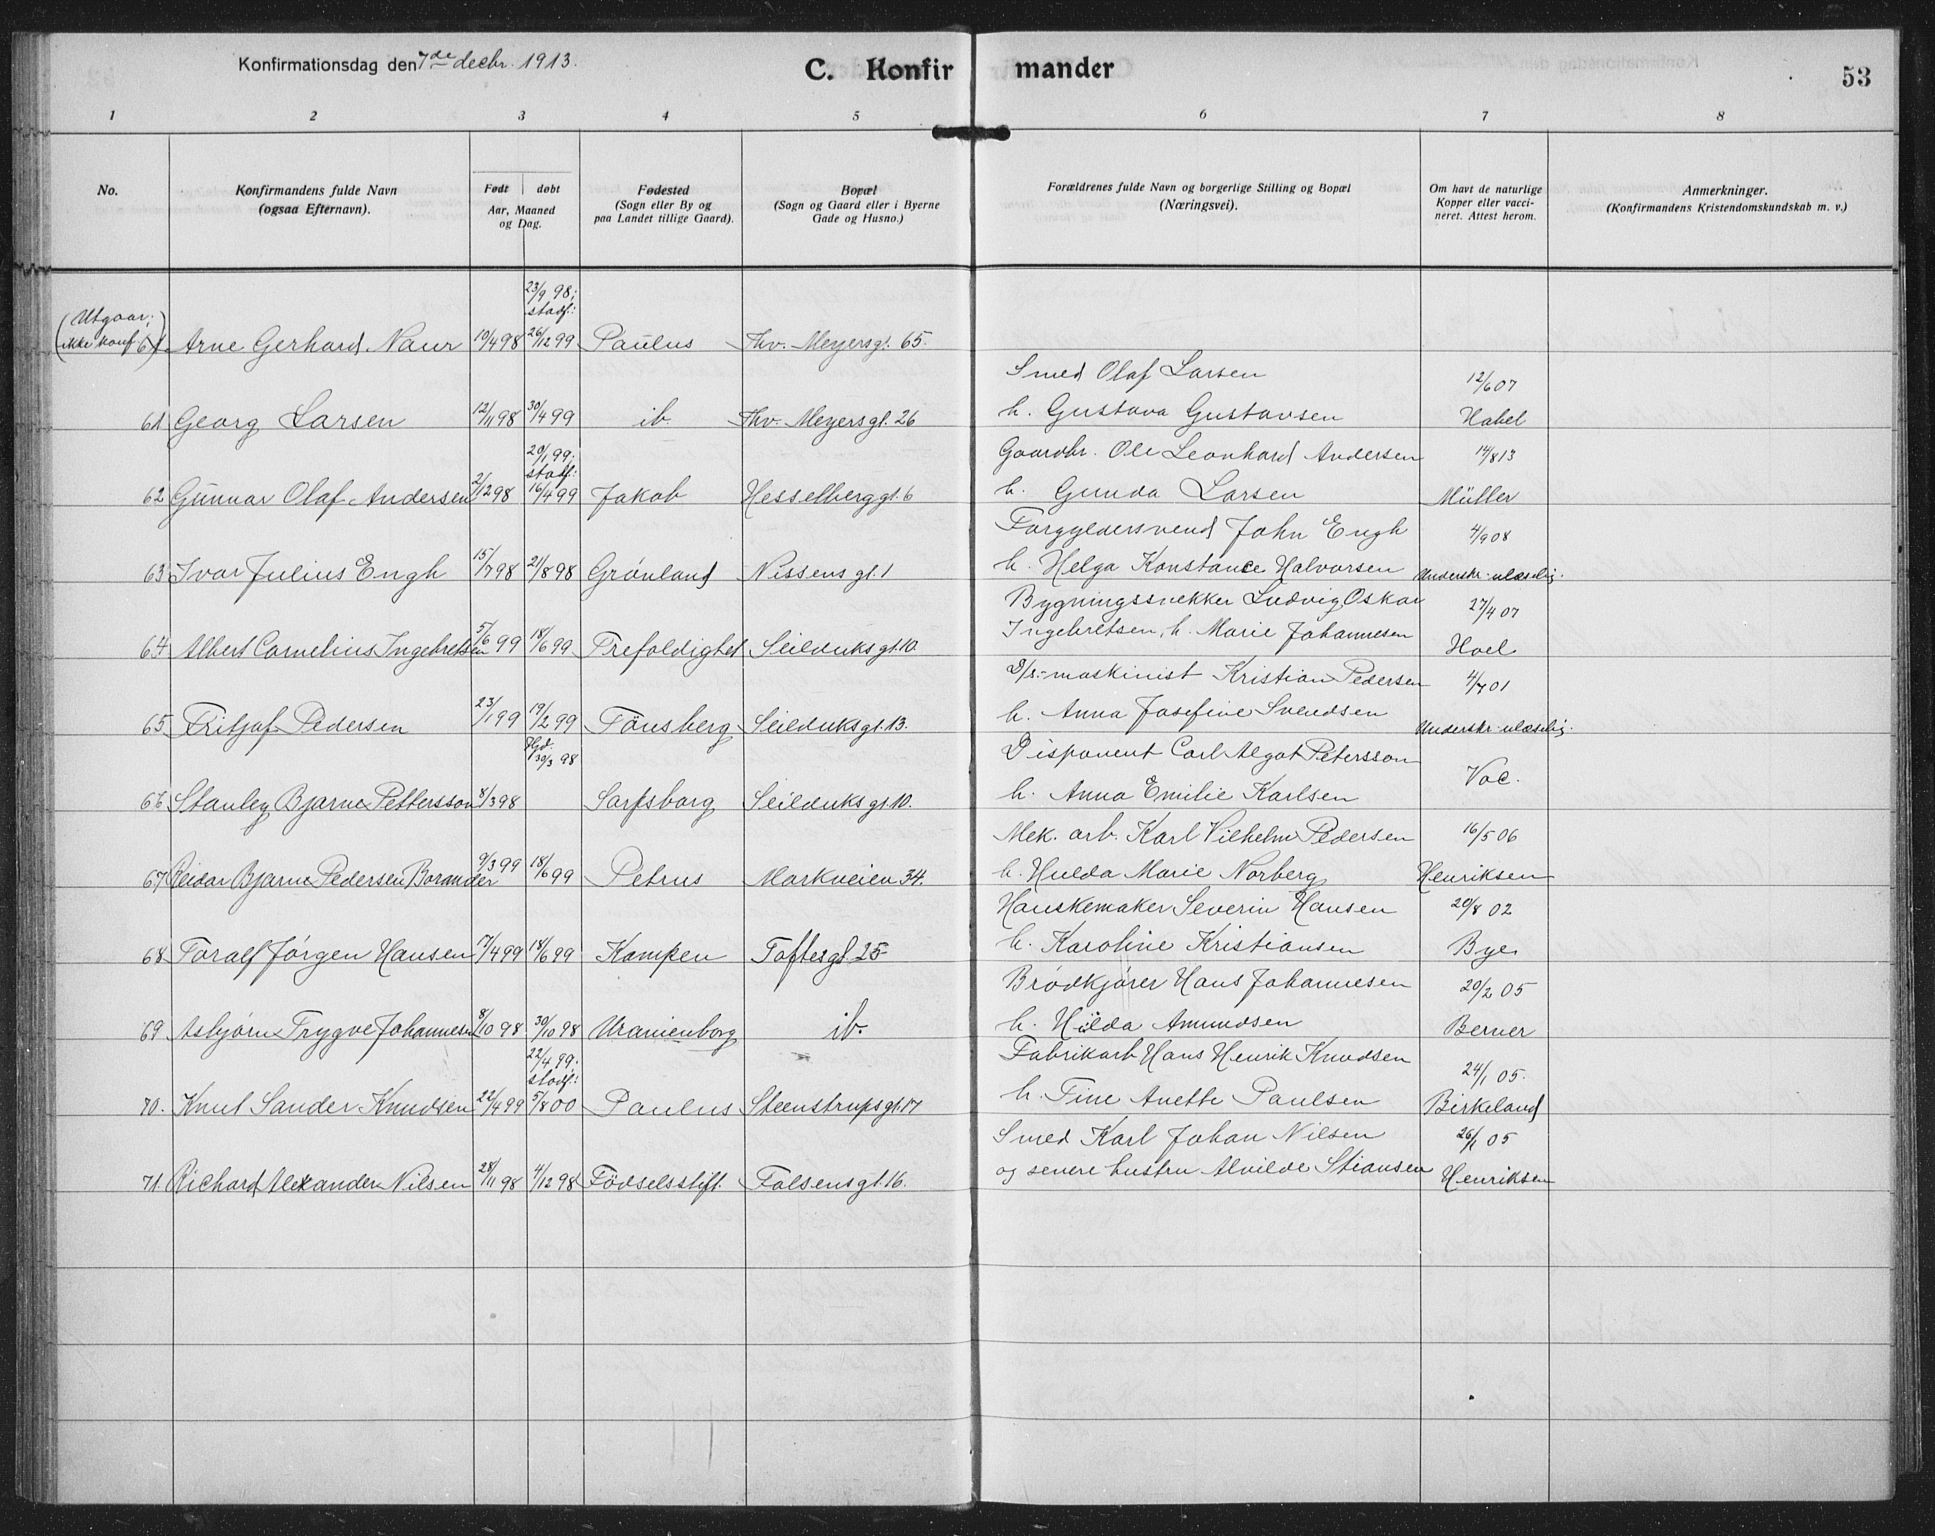 Konfirmationsdag den 7de decbr. 1913.
C. Konfirmander
53
1 2 3 4 5 6 7 8
No.
Konfirmandens fulde Navn
(ogsaa Efternavn).
Født døbt
Aar, Maaned
og Dag.
Fødested
(Sogn eller By og
paa Landet tillige Gaard).
Bopæl
(Sogn og Gaard eller i Byerne
Gade og Husno.)
Forældrenes fulde Navn og borgerlige Stilling og Bopæl
(Næringsvei).
Om havt de naturlige
Kopper eller vacci-
neret. Attest herom.
Anmerkninger.
(Konfirmandens Kristendomskundskab m. v.)
23/9 98;
stadf:
(Utgaar;
ikke konf.) Arne Gerhard Naur 19/4 98 26/12 99 Paulus Thv. Meyersgt. 65.
Smed Olaf Larsen 12/6 07
61 Georg Larsen 12/11 98 30/4 99 ib. Thv. Meyersgt. 26 h. Gustava Gustavsen Habel
20/1 99; Gaardbr. Ole Leonhard Andersen 14/8 13
stadf:
62 Gunnar Olaf Andersen 2/12 98 16/4 99 Jakob Hesselberggt. 6 h. Gunda Larsen Müller
Forgyldersvend John Engh 4/9 08
63 Ivar Julius Engh 15/7 98 21/8 98 Grönland Nissens gt. 1 h. Helga Konstance Halvorsen Underskr. ulæselig.
Bygningssnekker Ludvig Oskar 27/4 07
64 Albert Cornelius Ingebretsen 5/6 99 18/6 99 Trefoldighet Seilduks gt. 10. Ingebretsen, h. Marie Johannesen Hoel
D/s.-maskinist Kristian Pedersen 4/7 01
65 Fritjof Pedersen 23/1 99 19/2 99 Tönsberg Seilduks gt. 13. h. Anna Josefine Svendsen Underskr. ulæselig.
Hjd. 30/3 98 Disponent Carl Algot Petersson
66 Stanley Bjarne Pettersson 8/3 98 Sarpsborg Seilduks gt. 10. h. Anna Emilie Karlsen Vac.
Mek. arb. Karl Vilhelm Pedersen 16/5 06
67 Reidar Bjarne Pedersen Borander 9/3 99 18/6 99 Petrus Markveien 34. h. Hulda Marie Norberg Henriksen
Hanskemaker Severin Hansen 20/8 02
68 Toralf Jørgen Hansen 17/4 99 18/6 99 Kampen Toftesgt. 25 h. Karoline Kristiansen Bye
Brödkjører Hans Johannesen 20/2 05
69 Asbjørn Trygve Johannesen 8/10 98 30/10 98 Uranienborg ib. h. Hilda Amundsen Berner
22/4 99; Fabrikarb. Hans Henrik Knudsen 24/1 05.
stadf:
70. Knut Sander Knudsen 22/4 99 5/8 00 Paulus Steenstrupsgt. 17 h. Tine Anette Paulsen Birkeland
Smed Karl Johan Nilsen 26/1 05
71. Richard Alexander Nilsen 28/11 98 4/12 98 Födselsstift. Falsensgt. 16. og senere hustru Alvilde Stiansen Henriksen